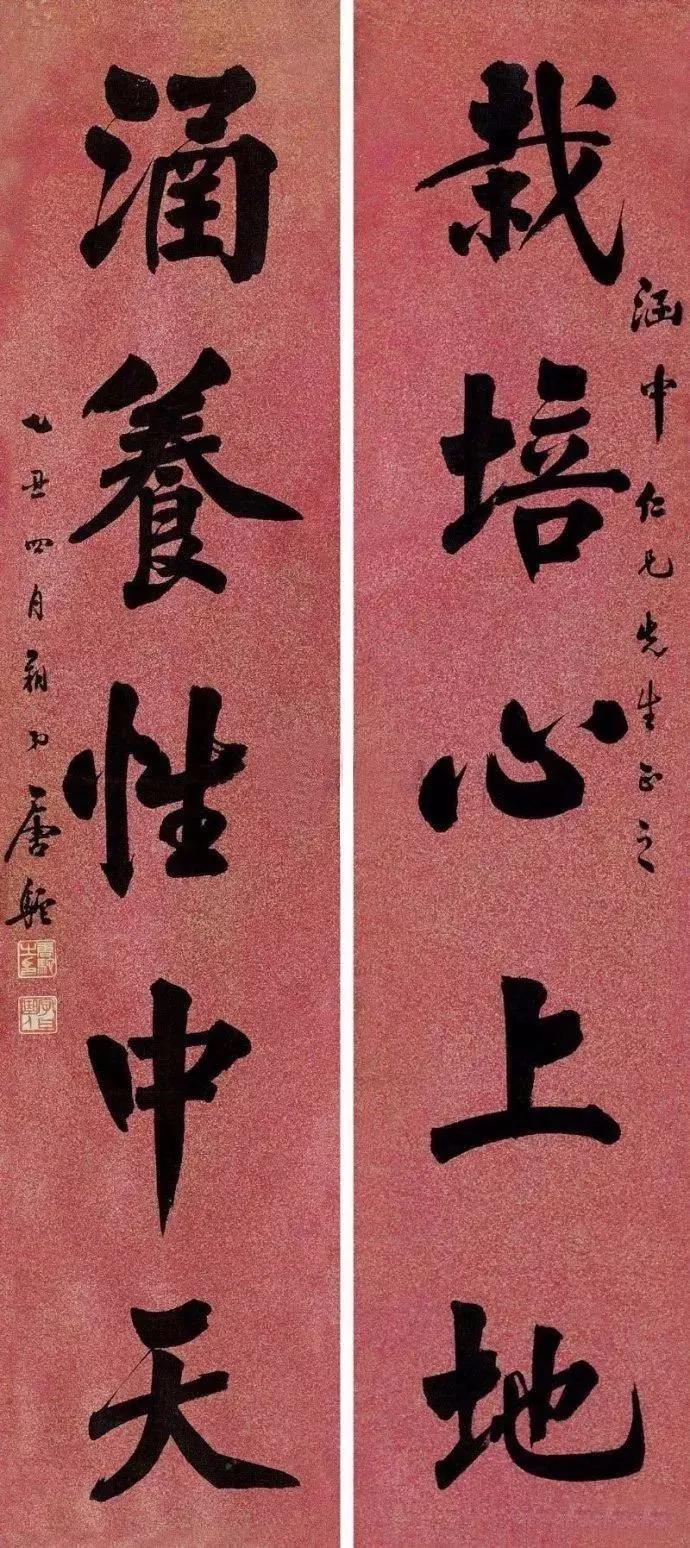 栽培心上地
涵中仁兄先生正之
涵養性中天
乙丑四月朔日唐駝